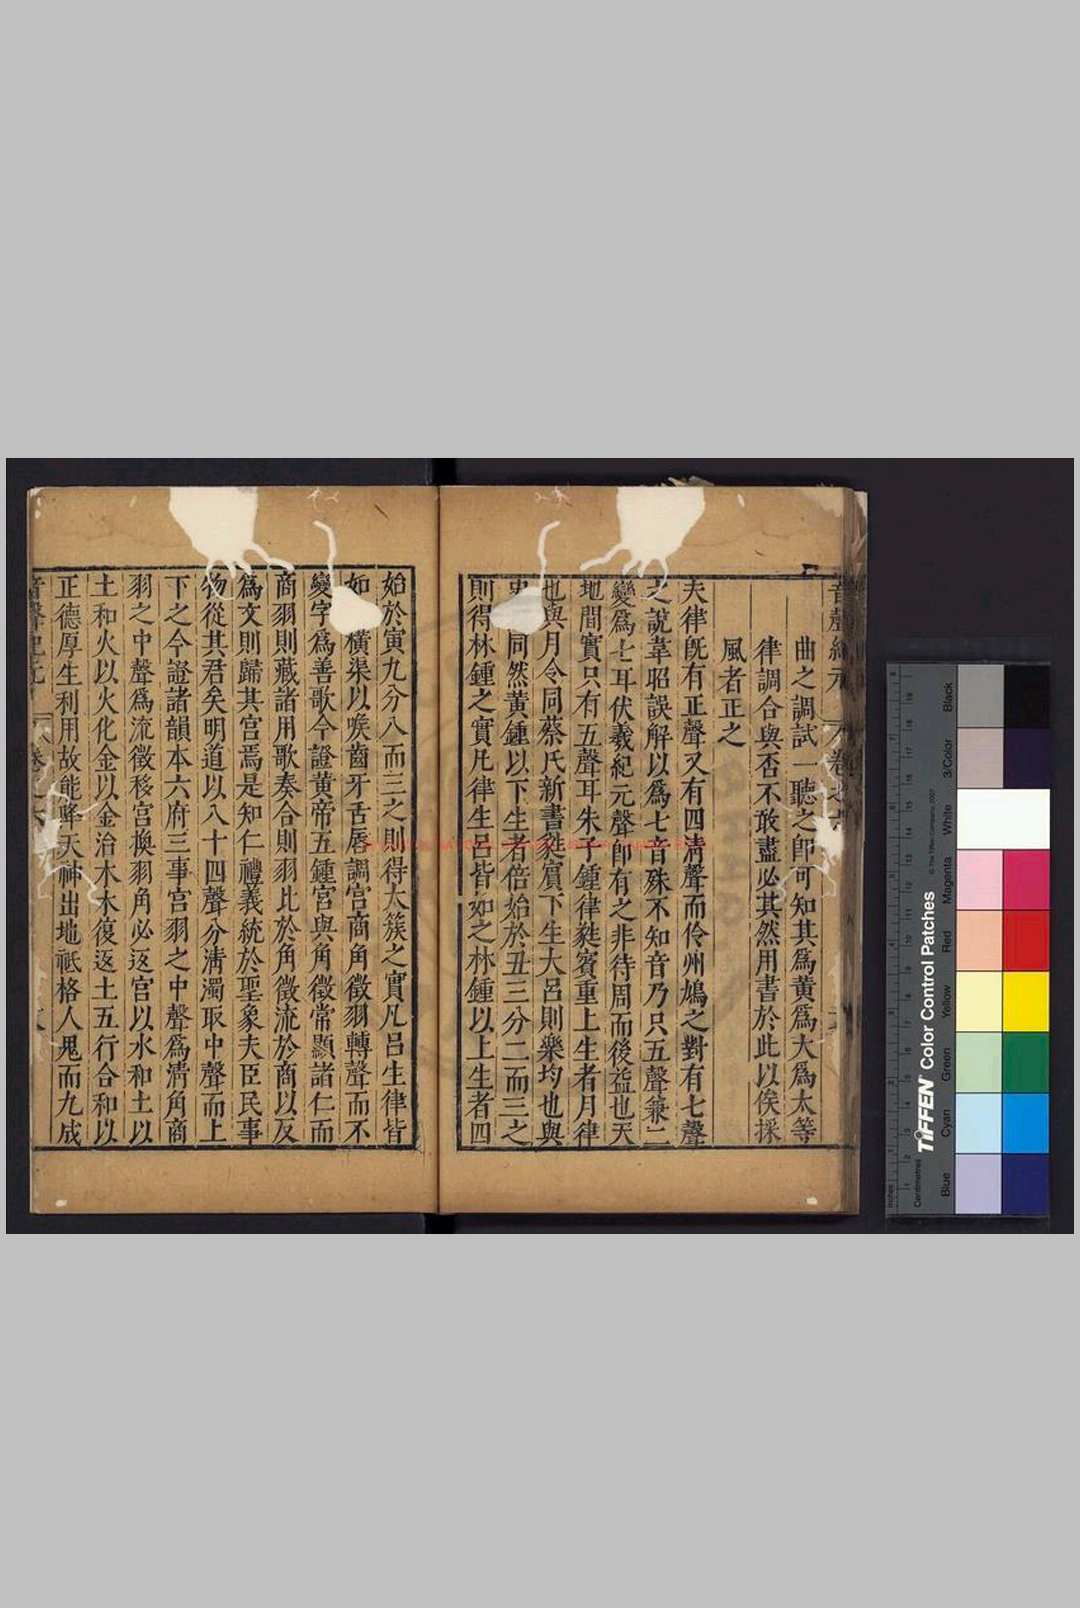 曲之調試一聽之即可知其爲黄爲大爲太等
律調合與否不敢盡必其然用書於此以俟採
風者正之
夫律旣有正聲又有四淸聲而伶州鳩之對有七聲
之說韋昭誤解以爲七音殊不知音乃只五聲兼二
變爲七耳伏羲紀元聲卽有之非待周而後益也天
地間實只有五聲耳朱子鍾律蕤賓重上生者月律
也與月令同蔡氏新書蕤賓下生大呂則樂均也與
史同然黄鍾以下生者倍始於丑三分二而三之
則得林鍾之實凡律生呂皆如之林鍾以上生者四
始於寅九分八而三之則得太簇之實凡呂生律皆
如橫渠以喉齒牙舌唇調宮商角徵羽轉聲而不
變字爲善歌今證黄帝五鍾宮與角徵常顯諸仁而
商羽則藏諸用歌奏合則羽比於角徵流於商以反
爲文則歸其宮焉是知仁禮義統於聖象夫臣民事
物從其君矣明道以八十四聲分淸濁取中聲而上
下之今證諸韻本六府三事宮羽之中聲爲淸角商
羽之中聲爲流徵移宮換羽角必返宮以水和土以
土和火以火化金以金治木木復返土五行合和以
正德厚生利用故能降天神出地祗格人鬼而九成
音聲紀元 卷之六
TIFFEN Color Control Patches
© The Tiffen Company, 2007
Centimetres
Inches
Blue
Cyan
Green
Yellow
Red
Magenta
White
3/Color
Black